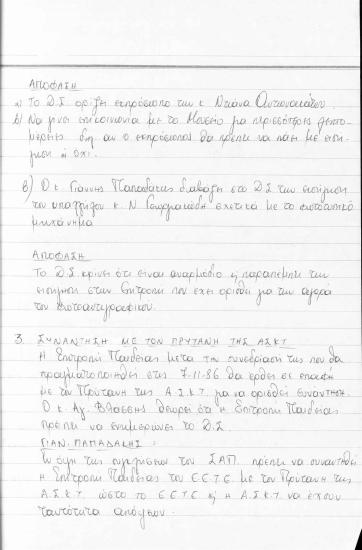 ΑΠΟΦΑΣΗ
α) Το Δ.Σ ορίζει εκπρόσωπο την κ. Ντιάνα Αντωνακάτου
β) Να γίνει επικοινωνία με το Μουσείο για περισσότερες λεπτο-
μέρειες δηλ αν ο εκπρόσωπος θα πρέπει να πάει με εισή-
γηση ή όχι.
β) Ο κ. Γιάννης Παπαδάκης διαβάζει στο Δ.Σ την εισήγηση
του υπαλλήλου κ. Ν Γεωργιάδη σχετικά με το φωτοτυπικό
μηχάνημα
ΑΠΟΦΑΣΗ
Το Δ.Σ κρίνει ότι είναι αναρμόδιο κ παραπέμπει την
εισήγηση στην Επιτροπή που έχει ορισθεί για την αγορά
του φωτοαντιγραφικού.
3. ΣΥΝΑΝΤΗΣΗ ΜΕ ΤΟΝ ΠΡΥΤΑΝΗ ΤΗΣ ΑΣΚΤ
Η Επιτροπή Παιδείας μετά την συνεδρίαση της που θα
πραγματοποιηθεί στις 7-11-86 θα έρθει σε επαφή
με τον Πρύτανη της Α.Σ.Κ.Τ. για να ορισθεί συνάντηση.
Ο κ. Αγ. Βλάσσης θεωρεί ότι η Επιτροπή Παιδείας
πρέπει να ενημερώνει το Δ.Σ
ΓΙΑΝ. ΠΑΠΑΔΑΚΗΣ:
Εν όψη της συζητήσεων του ΣΑΠ. πρέπει να συναντηθεί
η Επιτροπή Παιδείας του Ε.Ε.Τ.Ε. με τον Πρύτανη της
Α.Σ.Κ.Τ. ώστε το Ε.Ε.Τ.Ε κ η Α.Σ.Κ.Τ. να έχουν
ταυτότητα απόψεων.